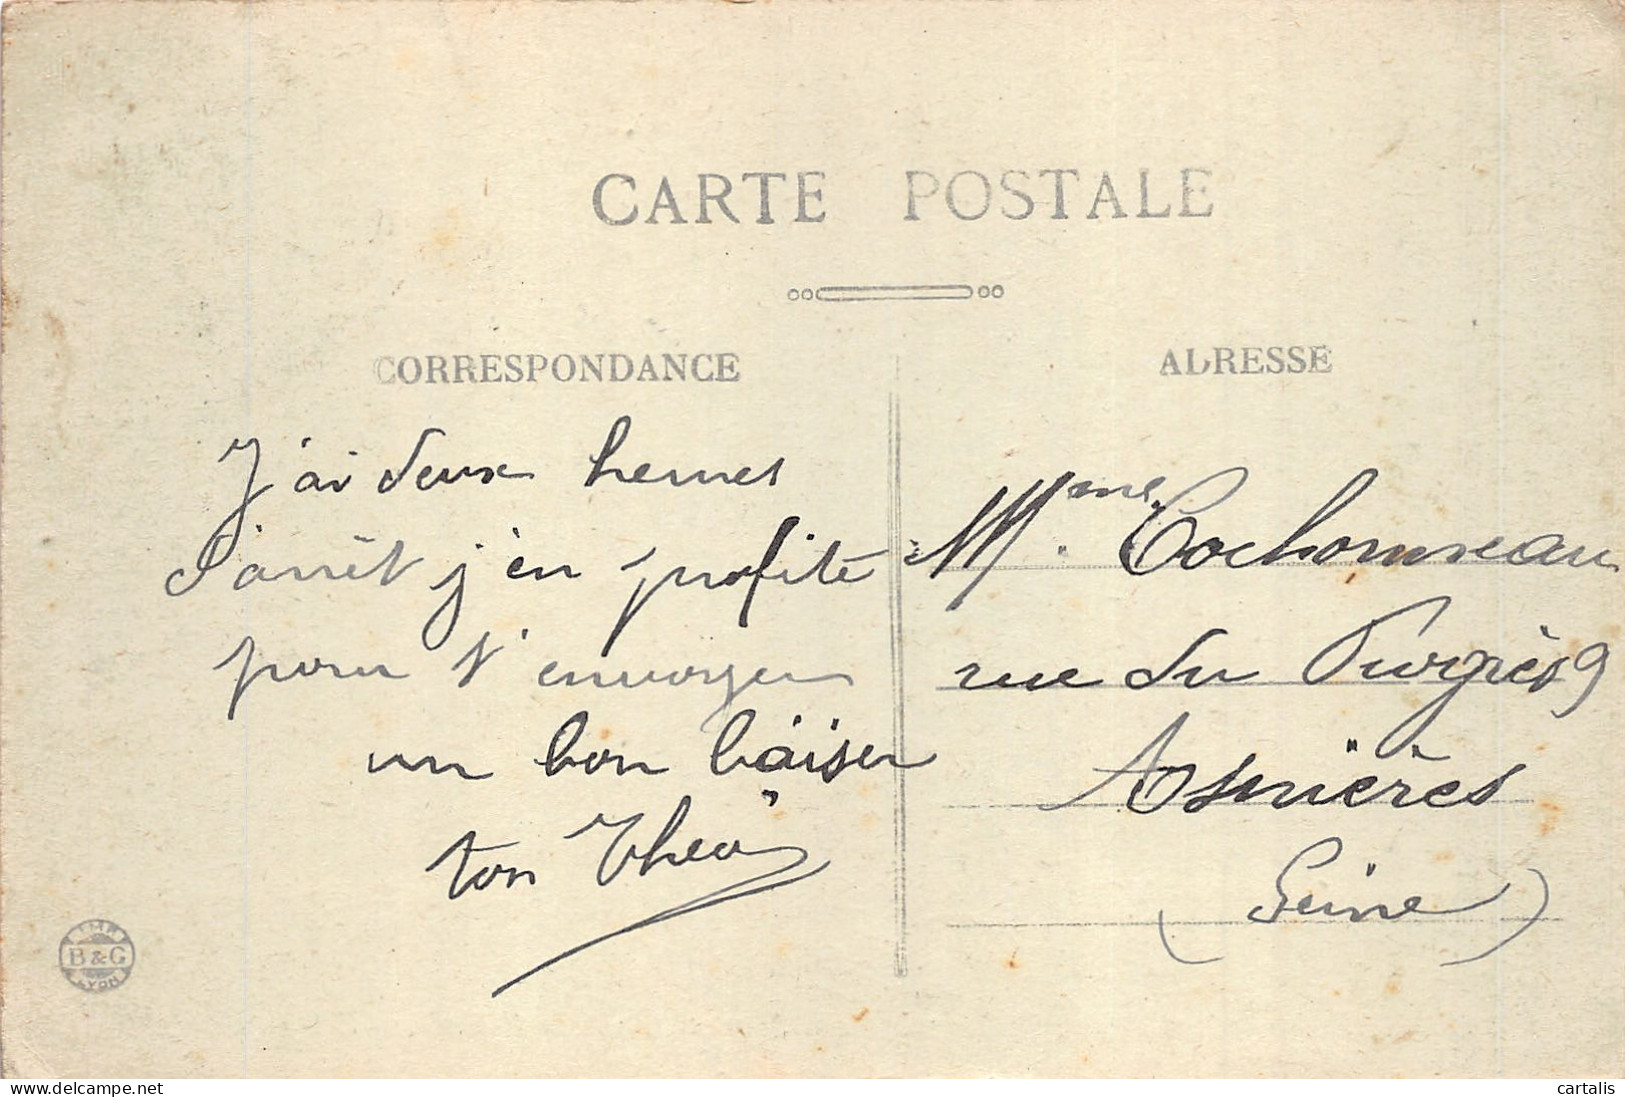 CARTE POSTALE
CORRESPONDANCE
J'ai deux heures
d'arrêt j'en profite
pour t'envoyer
un bon baiser
ton Théo
ADRESSE
Mme. Cochonneau
rue du
Asnières
(Seine)
IMP.
B & G
LYON
https://www.delcampe.net
cartalis